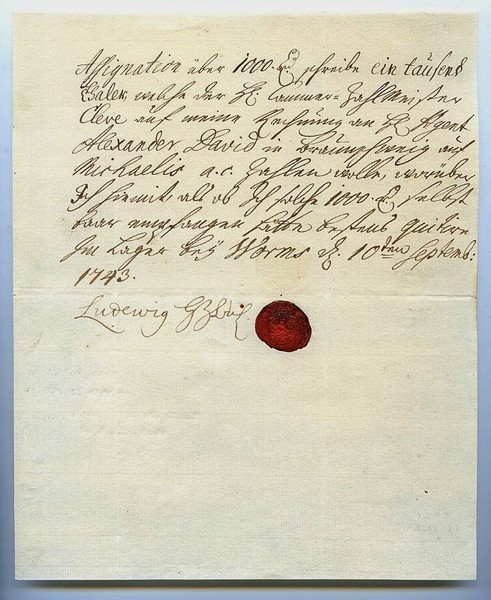 Assignation über 1000. rth schreibe ein tausend
Thaler, welche der H. Cammer-Zahlmeister
Cleve auf meine Rechnung an H. Agent
Alexander David in Braunschweig auf
Michaelis a. c. zahlen wolle, worüber
Ich hiemit als ob Ich solche 1000. rth selbst
baar empfangen hätte bestens quitire
Im Lager bey Worms d. 10ten Septemb:
1743.
Ludwig